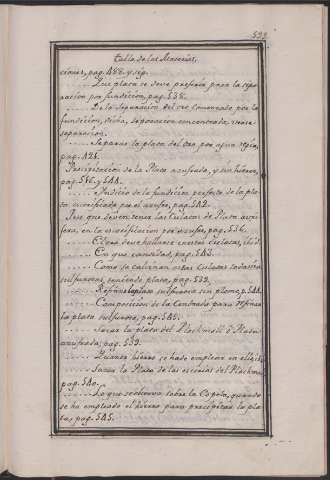 599
Tabla de las Materias,
ciones, pag. 488. y sig.
......Que plata se deve preferir para la sepa-
racion por fundicion, pag. 538.
......De la separacion del oro comenzado por la
fundicion, dicha, separacion concentrada,
separacion.
......Separar la plata del Oro por agua regia,
pag. 421.
Precipitacion de la Plata azufrada, y sin hierro,
pag. 516. y 544.
......Indicio de la fundicion perfecta de la pla-
ta escorificada por el azufre, pag. 542.
Peso que deven tener las Culatas de Plata auri-
fera, en la escorificacion por azufre, pag. 536.
......El oro deve hallarse en estas culatas, ibid.
......En que cantidad, pag. 543.
......Como se calcinan estas culatas todavia
sulfurosas, teniendo plata, pag. 539.
......Refinar la plata sulfurosa sin plomo, pag. 544.
......Composicion de la Cendrada para refinar
la plata sulfurosa, pag. 545.
......Sacar la plata del Plachmall ó Plata
azufrada, pag. 539.
......Quanto hierro se ha de emplear en ello, ibid.
......Sacar la Plata de las escorias del Plachmall,
pag. 540.
......Lo que se observa sobre la Copela, quando
se ha empleado el hierro para precipitar la pla-
ta, pag. 545.